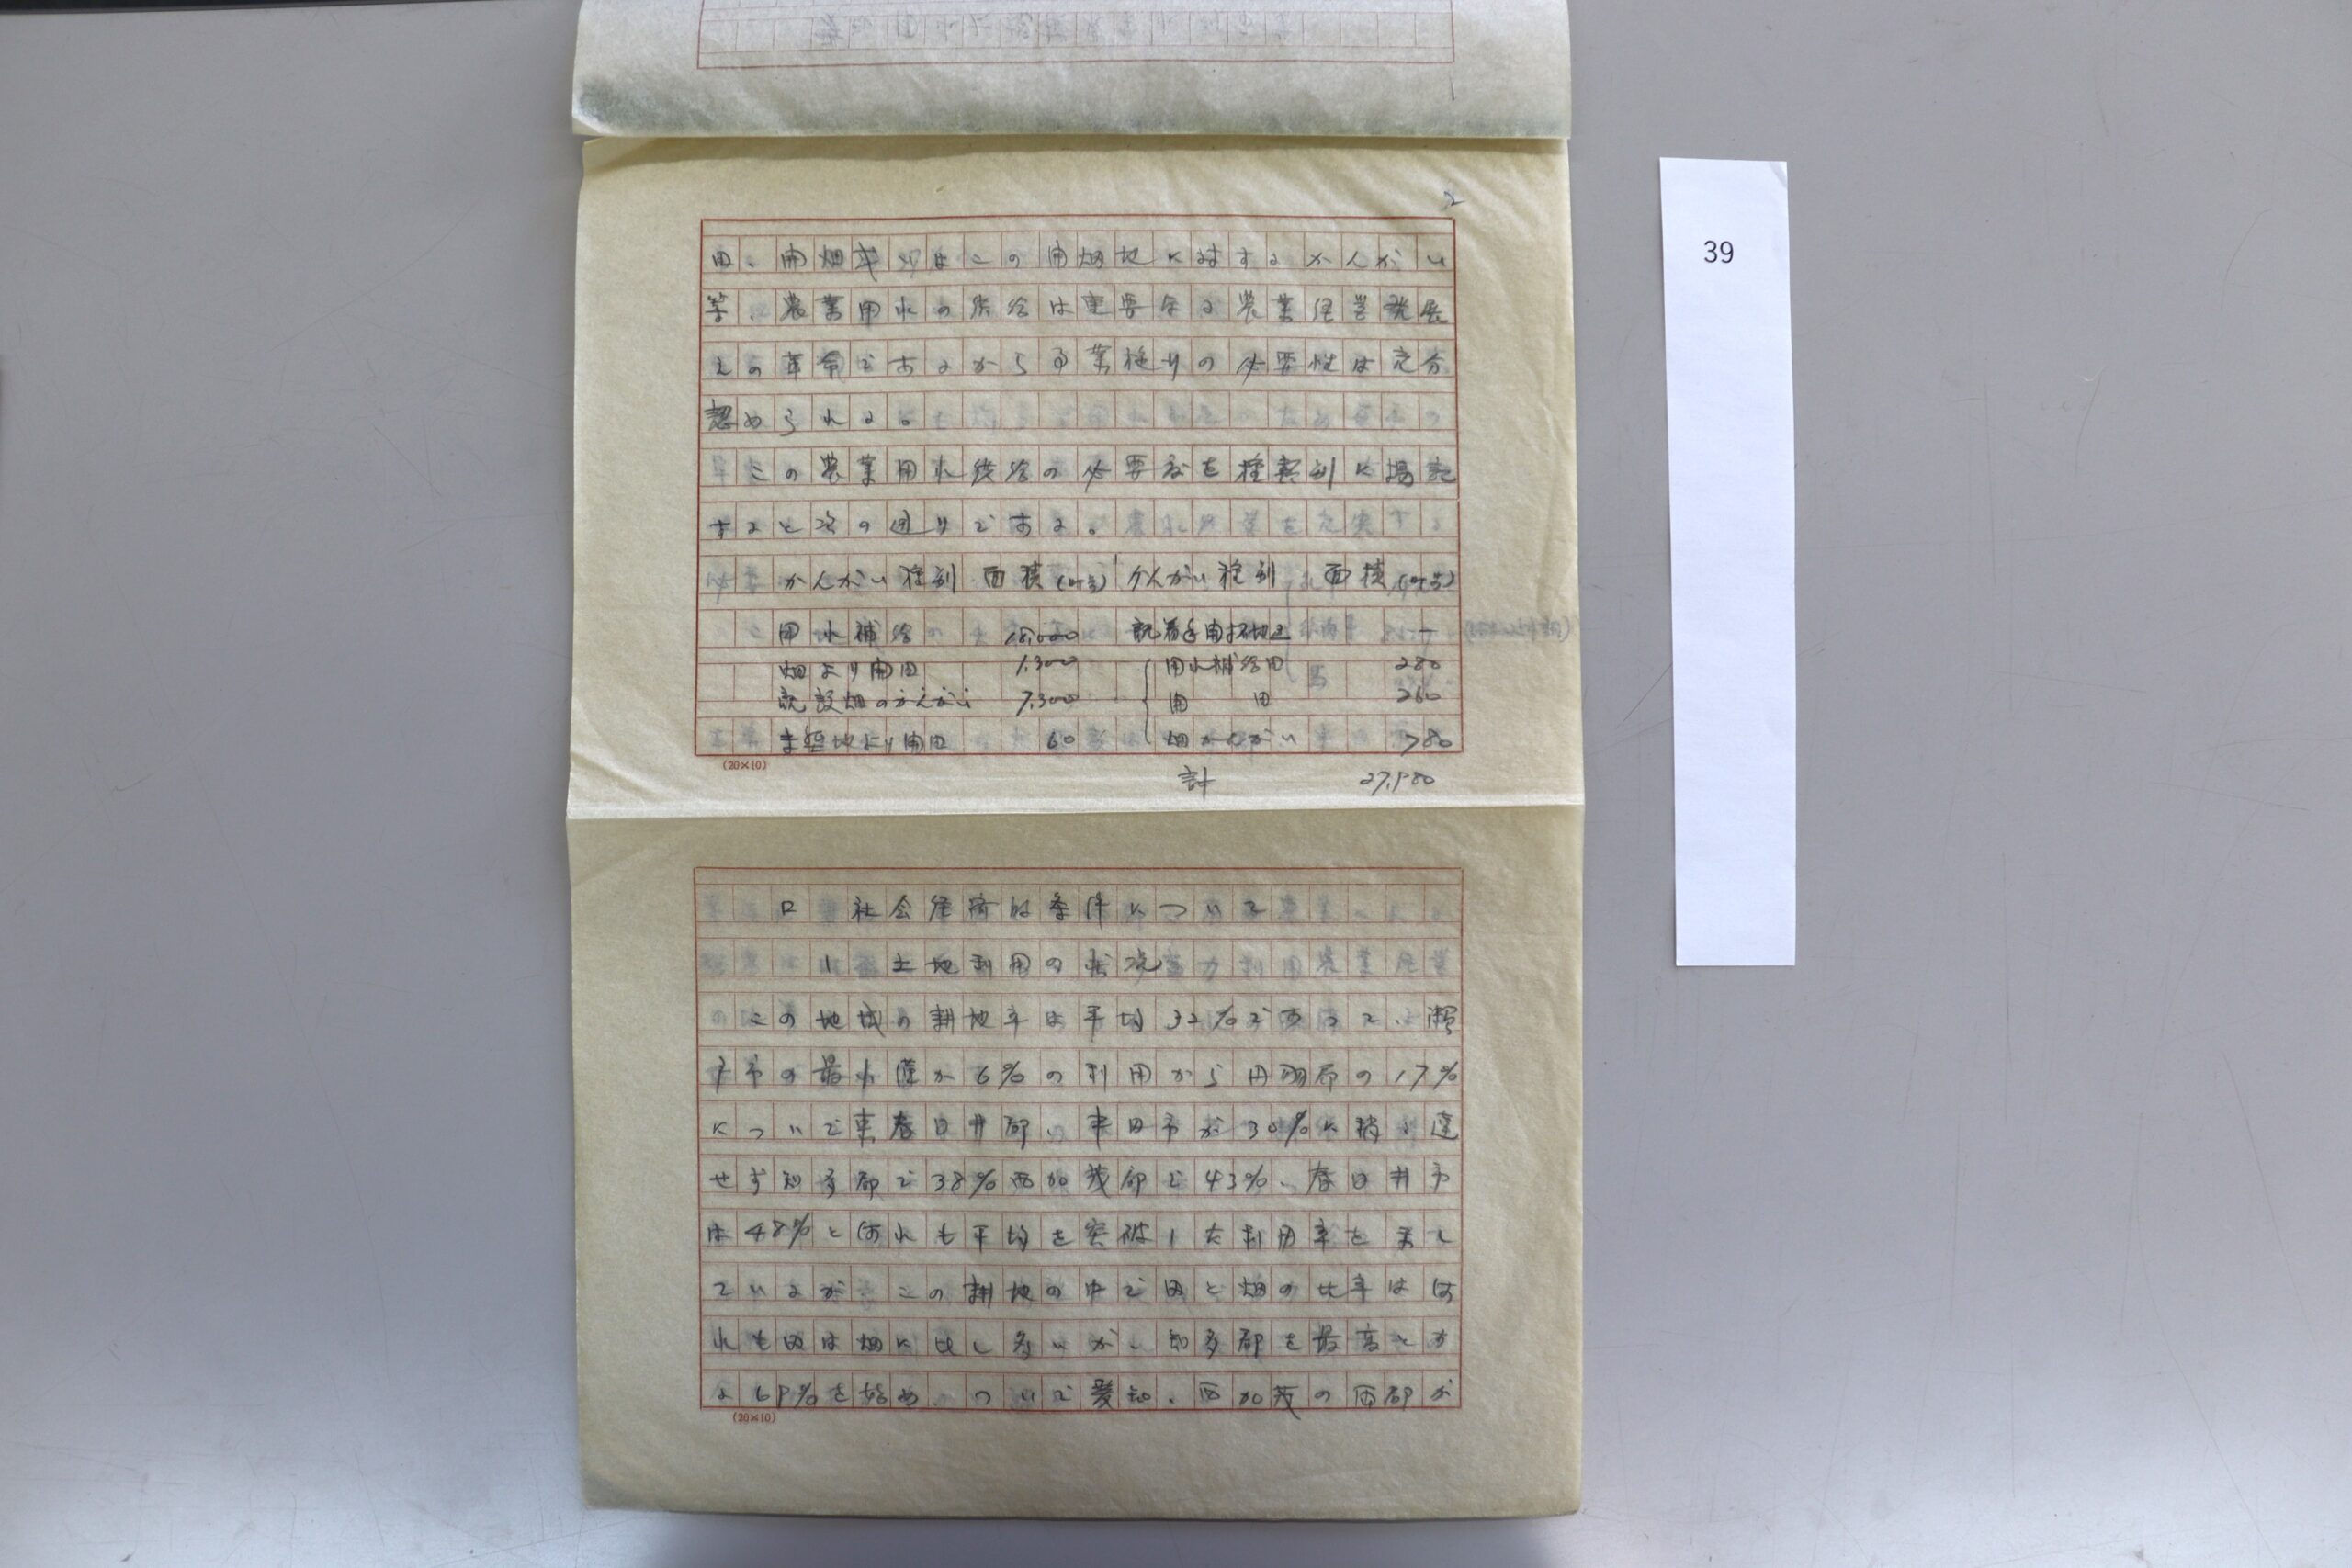 2
田、開畑或ひはこの開畑地に対するかんがい
等、農業用水の供給は重要なる農業経営発展
えの革命であるから事業施行の必要性は充分
認められる。
この農業用水供給の必要度を種類別に掲記
すると次の通りである。
かんがい種別 面積(町歩) かんがい種別 面積(町歩)
用水補給 18,000 既着手開拓地区 ー
畑より開田 1,300 用水補給田 280
既設畑のかんがい 7,300 開 田 260
未墾地より開田 60 畑かんがい 780
(20×10)
計 27,980
ロ 社会経済的条件について
1 土地利用の状況
この地域の耕地率は平均32%であって、瀬
戸市の最小僅か6%の利用から丹羽郡の17%
について東春日井郡、半田市が30%に稍々達
せず知多郡で38%西加茂郡で43%、春日井市
は48%と何れも平均を突破した利用率を示し
ているが、この耕地の中で田と畑の比率は何
れも田は畑に比し多いが、知多郡を最高とす
る69%を始め、ついで愛知、西加茂の両郡が
(20×10)
39